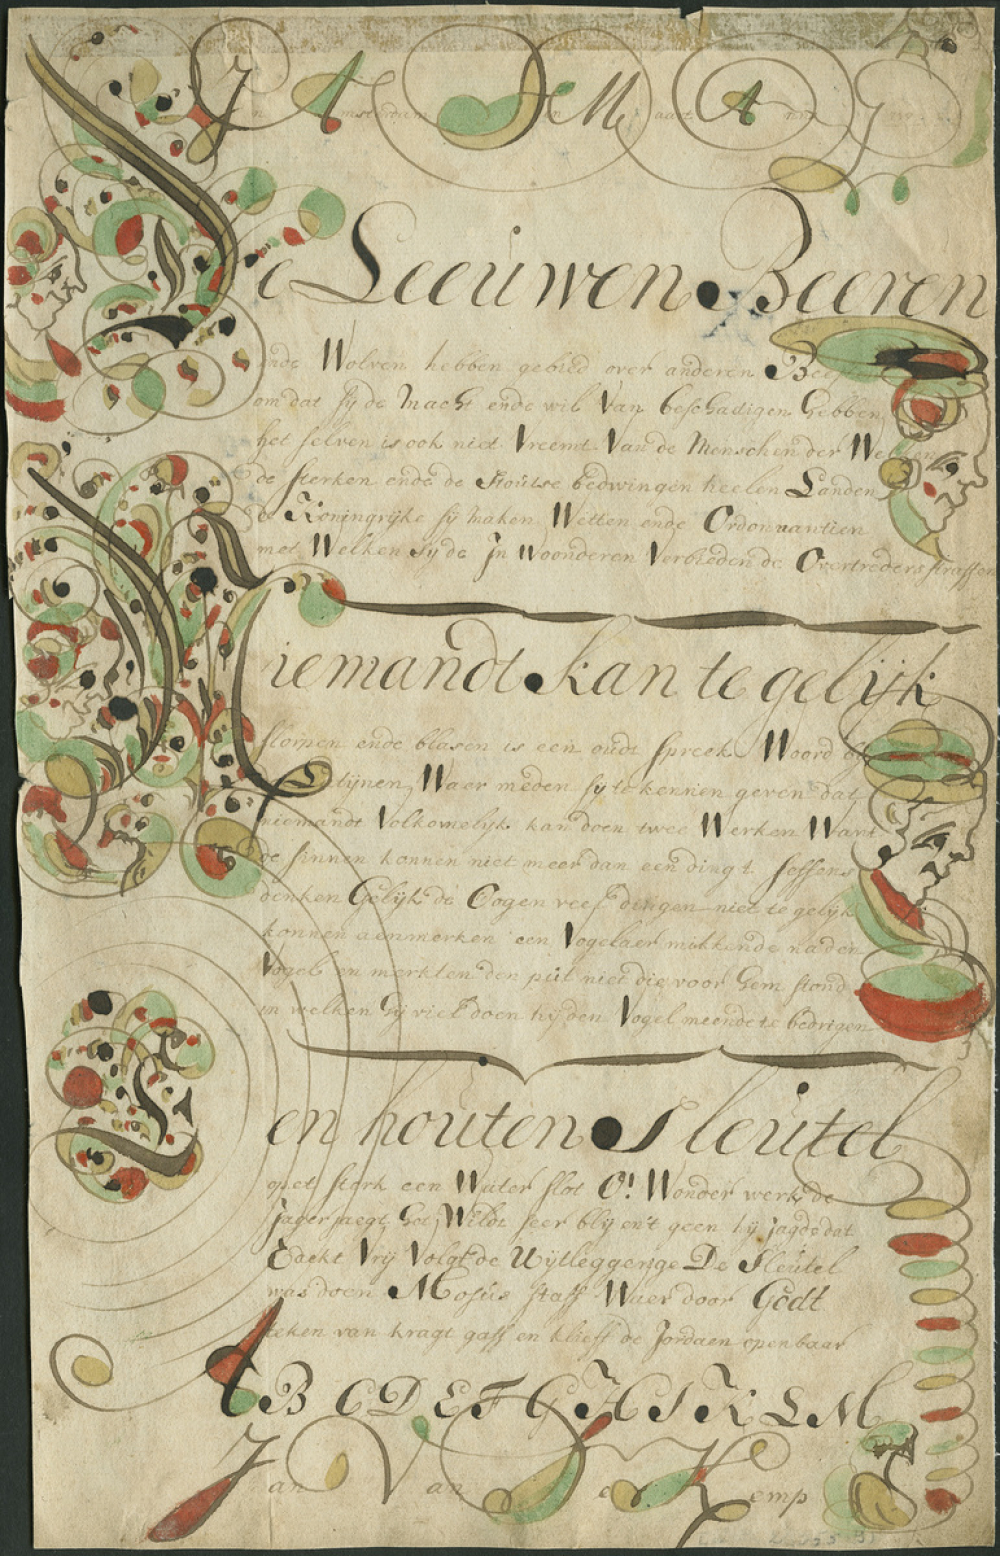 In Amsterdam In Maart Anno
De Leeuwen Beeren
ende Wolven hebben gebied over anderen Beesten
om dat sy de Macht ende wil Van beschadigen hebben,
het selven is ook niet Vreemt Van de Menschen der Wetten
de sterken ende de Stoutse bedwingen heelen Landen
de Koningrijke sy maken Wetten ende Ordonnantien
met Welken sy de In Woonderen Verbieden de Overtreders straffen
Niemandt kan te gelijk
slorpen ende blasen is een oudt spreek Woord by
de Latijnen, Waer meden sy te kennen geven dat
niemandt Volkomelijk kan doen twee Werken Want
de sinnen konnen niet meer dan een dingt seffens
denken Gelijk de Oogen veel dingen niet te gelijk
konnen aenmerken een Vogelaer mikkende na den
Vogel en merkten den put niet die voor hem stond
in welken hij viel doen hij den Vogel meende te bedrigen
Een houten Sleutel
opet sterk een Water slot O! Wonder werk de
Jager jaegt het Wildt seer blij en't geen hij jagde dat
Vrij Volgt de Uijtleggenge De Sleutel
was doen Mosus staff Waer door Godt
teken van kragt gaff en klieff de Jordaen openbaar
A B C D E F G H I K L M
Jan Van de Kemp